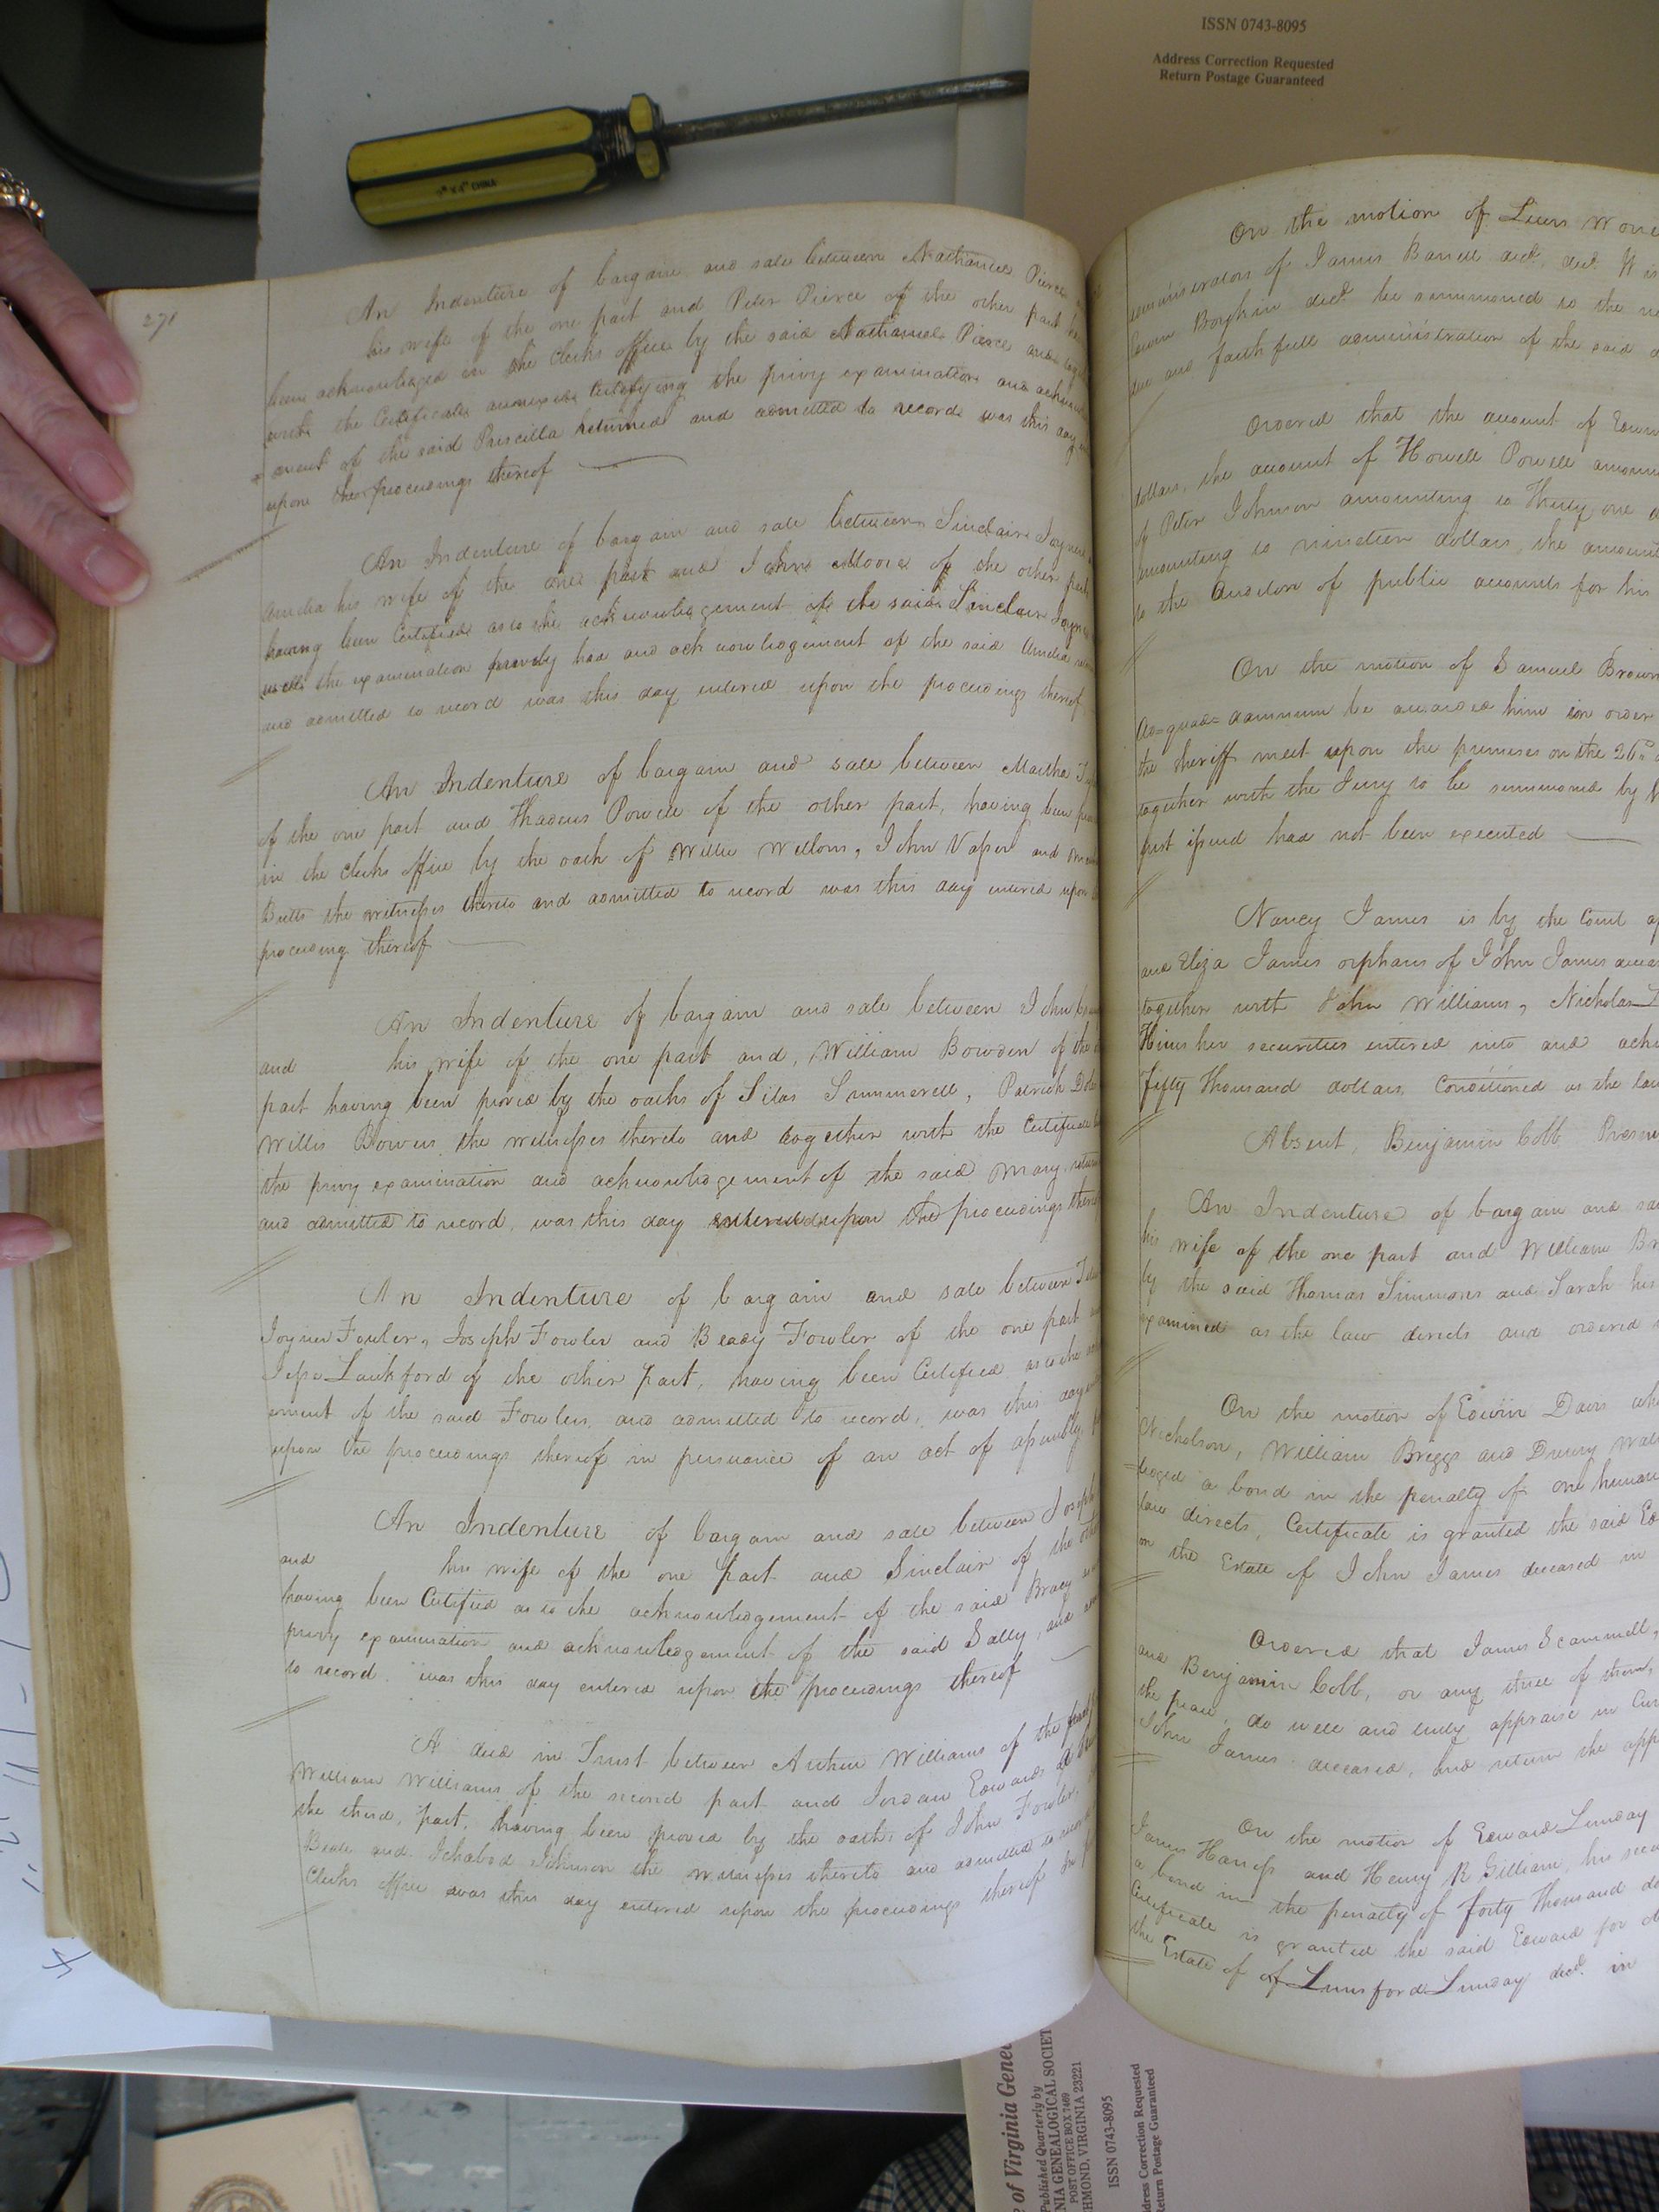 ISSN 0743-8095
Address Correction Requested
Return Postage Guaranteed
CHINA
271
An Indenture of bargain and sale between Nathaniel Pierce
his wife of the one part and Peter Pierce of the other part
been acknowledged in the Clerks office by the said Nathaniel Pierce and
with the Certificate annexed Certifying the privy examination and
ment of the said Priscilla returned and admitted to record was this day
upon the proceedings thereof
An Indenture of bargain and sale between Sinclair Joyner
Amelia his wife of the one part and John Moore of the other
having been Certified as to the acknowledgement of the said Sinclair
well the examination privily had and acknowledgement of the said Amelia
and admitted to record was this day entered upon the proceedings thereof
An Indenture of bargain and sale between Martha
of the one part and Thadeus Powell of the other part, having been
in the Clerks office by the oath of Willie Wellons, John Vaser and
Butts the witnesses thereto and admitted to record was this day entered upon
proceeding thereof
An Indenture of bargain and sale between John
and his wife of the one part and, William Bowden of the
part having been proved by the oaths of Silas Summerell, Patrick
Willis Bowers, the witnesses thereto and together with the Certificate
the privy examination and acknowledgement of the said Mary
and admitted to record, was this day entered upon the proceedings
An Indenture of bargain and sale between
Joyner Fowler, Joseph Fowler and Beady Fowler of the one part
Jesse Lankford of the other part, having been Certified as to the
ement of the said Fowlers, and admitted to record, was this day
upon the proceedings thereof in pursuance of an act of assembly
An Indenture of bargain and sale between Joseph
and his wife of the one part and Sinclair of the
having been Certified as to the acknowledgement of the said Bracy
privy examination and acknowledgement of the said Sally, and
to record was this day entered upon the proceedings thereof
A deed in Trust between Arthur Williams of the
William Williams of the second part and Jordan Edwards
the third, part, having been proved by the oaths of John Fowler,
Beale and Ichabod Johnson the witnesses thereto and admitted to
Clerks office was this day entered upon the proceedings thereof
On the motion of
of James Barrell decd.
decd be summoned to the
due and faithfull administration of the said
Ordered that the account of
dollars, the account of Howell Powell
of Peter Johnson amounting to Thirty one
amounting to nineteen dollars, the
to the Auditor of public accounts for his
On the motion of Samuel Brown
Ad=quad=damnum be awarded him in order
the sheriff meet upon the premises on the 26th
together with the Jury to be summoned by
first issued had not been executed
Nancy James is by the Court
and Eliza James orphans of John James
together with John Williams, Nicholas
Hines her securities entered into and
fifty Thousand dollars, Conditioned as the
Absent, Benjamin Cobb
An Indenture of bargain and
his wife of the one part and William
by the said Thomas Simmons and Sarah his
examined as the law directs and ordered
On the motion of Edwin Davis
Nicholson, William Briggs and Drewry
ledged a bond in the penalty of one
law directs, Certificate is granted the said
on the Estate of John James deceased in
Ordered that James Scammell,
and Benjamin Cobb, or any three of them,
the peace, do well and truly appraise in
John James deceased, and return the
On the motion of Edward Lunday
James and Henry R Gilliam, his
a bond in the penalty of forty Thousand
Certificate is granted the said Edward for
the Estate of of Lunsford Lunday decd. in
of Virginia
Published Quarterly by
GENEALOGICAL SOCIET
POST OFFICE BOX 7469
HMOND, VIRGINIA 23221
ISSN 0743-8095
ddress Correction Requested
Return Postage Guaranteed